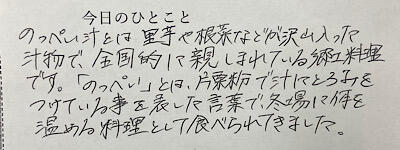 今日のひとこと
のっぺい汁とは里芋や根菜などが沢山入った
汁物で、全国的に親しまれている郷土料理
です。「のっぺい」とは、片栗粉で汁にとろみを
つけている事を表した言葉で、冬場に体を
温める料理として食べられてきました。